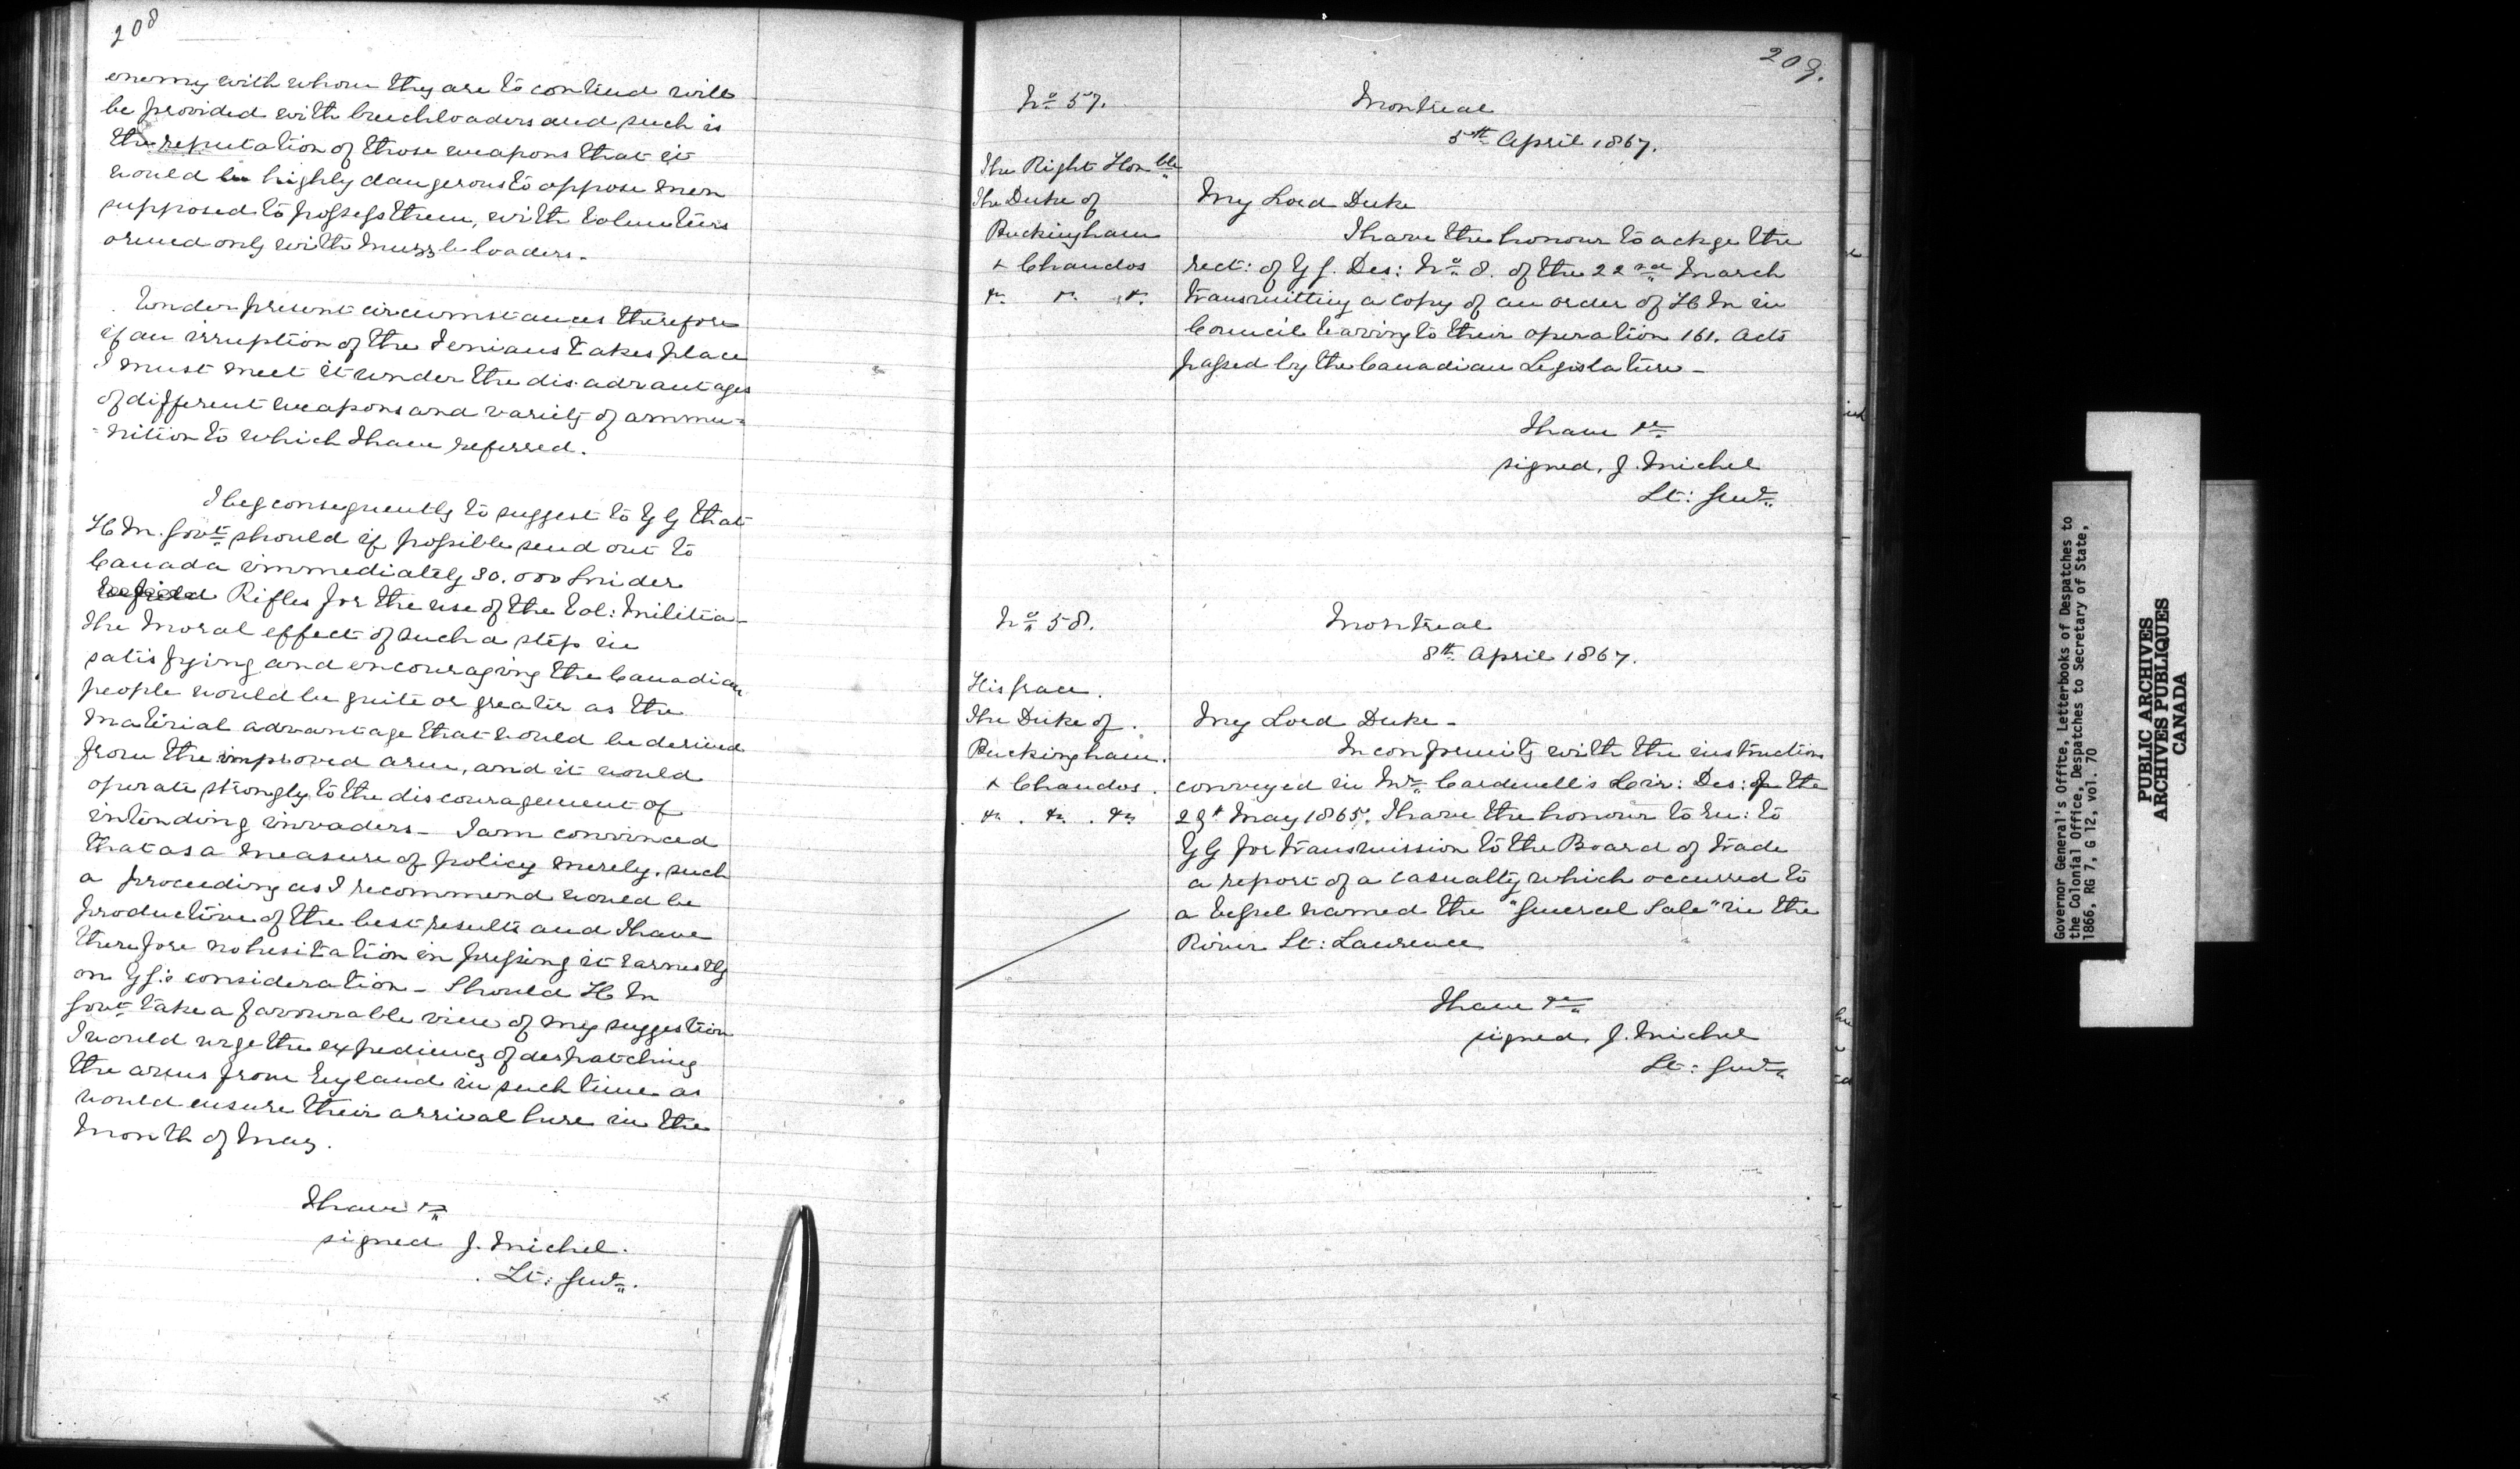 208
enemy with whom they are to contend will
be provided with breechloaders and such is
the reputation of those weapons that it
would be highly dangerous to oppose men
supposed to possess them, with Volunteers
armed only with muzzle loaders.
Under present circumstances therefore
if an irruption of the Fenians takes place
I must meet it under the disadvantages
of different weapons and variety of ammu-
-nition to which I have referred.
I beg consequently to suggest to Y G that
H M. Govt should if possible send out to
Canada immediately 30.000 Snider
Enfield Rifles for the use of the Vol: Militia-
the moral effect of such a step in
satisfying and encouraging the Canadian
people would be quite or greater as the
material advantage that would be derived
from the improved arm, and it would
operate strongly to the discouragement of
intending invaders - I am convinced
that as a measure of policy merely, such
a proceeding as I recommend would be
productive of the best results and I have
therefore no hesitation in pressing it earnestly
on Y G's consideration - Should H M
Govt take a favourable view of my suggestion
I would urge the expediency of despatching
the arms from England in such time as
would ensure their arrival here in the
month of May.
I have &c
signed J. Michel.
Lt: Genl.
209.
No 57.
Montreal
5th April 1867.
The Right Honble
The Duke of
Buckingham
& Chandos
&. &. &.
My Lord Duke
I have the honour to ackge the
rect: of Y G. Des: No 8. of the 22nd March
transmitting a copy of an order of H M in
Council leaving to their operation 161. Acts
passed by the Canadian Legislature -
I have &c
signed, J. Michel
Lt: Genl.
No 58.
Montreal
8th April 1867.
His Grace.
The Duke of.
Buckingham.
& Chandos.
&c. &c. &c
My Lord Duke -
In conformity with the instructions
conveyed in Mr Cardwell's Cir: Des: of the
29t May 1865. I have the honour to en: to
Y G for transmission to the Board of Trade
a report of a casualty which occurred to
a Vessel named the "General Sale" in the
River St: Lawrence
I have &c
signed, J. Michel
Lt: Genl
Governor General's Office, Letterbooks of Despatches to
the Colonial Office, Despatches to Secretary of State,
1866, RG 7, G 12, vol. 70
PUBLIC ARCHIVES
ARCHIVES PUBLIQUES
CANADA